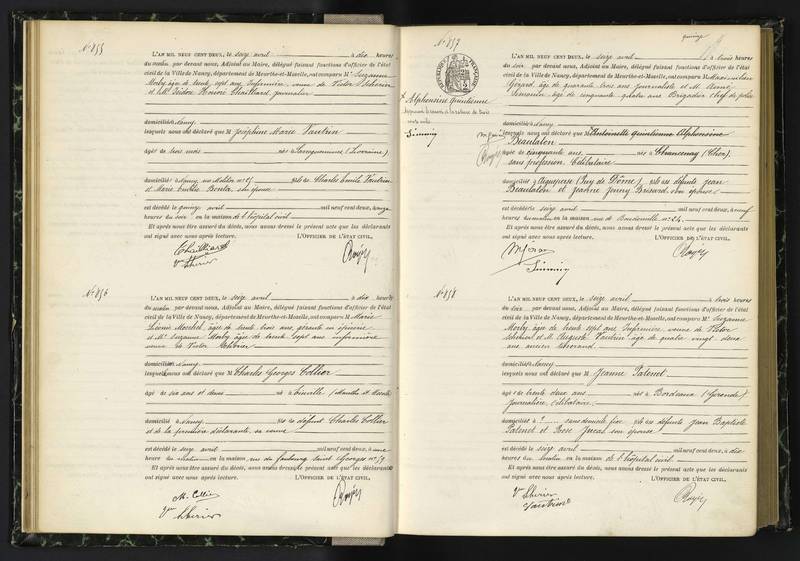 N° 855
L'AN MIL NEUF CENT DEUX, le seize avril à dix heures
du matin par devant nous, Adjoint au Maire, délégué faisant fonctions d'officier de l'état
civil de la Ville de Nancy, département de Meurthe-et-Moselle, ont comparu Me Suzanne
Morby âgée de trente sept ans Infirmière, veuve de Victor Thérier
et M. Isidore Honoré Chailliard, journalier
domiciliés à Nancy
lesquels nous ont déclaré que M Joséphine Marie Vautrin
âgée de trois mois née à Sarreguemines (Lorraine)
domiciliée à Nancy, fille de Charles Emile Vautrin
et Marie son épouse
est décédée le quinze avril mil neuf cent deux, à onze
heures du soir en la maison de l'hôpital civil
Et après nous être assuré du décès, nous avons dressé le présent acte que les déclarants
ont signé avec nous après lecture. L'OFFICIER DE L'ÉTAT CIVIL,
Chailliard
Ve Thérier
N° 856
L'AN MIL NEUF CENT DEUX, le seize avril à dix heures
du matin par devant nous, Adjoint au Maire, délégué faisant fonctions d'officier de l'état
civil de la Ville de Nancy, département de Meurthe-et-Moselle, ont comparu M Marie
âgée de trente trois ans, gérante en épicerie
et Me Suzanne Morby âgée de trente sept ans infirmière
veuve de Victor Thérier
domiciliés à Nancy
lesquels nous ont déclaré que M Charles Georges Collier
âgé de six ans et demi né à Einville (Meurthe et Moselle)
domicilié à Nancy fils de défunt Charles Collier
et de la première déclarante, sa veuve
est décédé le seize avril mil neuf cent deux, à une
heure du matin en la maison, rue du faubourg Saint Georges n° 59
Et après nous être assuré du décès, nous avons dressé le présent acte que les déclarants
ont signé avec nous après lecture. L'OFFICIER DE L'ÉTAT CIVIL,
M. Collier
Ve Thérier
N° 857
Alphonsine Quintienne
L'AN MIL NEUF CENT DEUX, le seize avril à trois heures
du soir par devant nous, Adjoint au Maire, délégué faisant fonctions d'officier de l'état
civil de la Ville de Nancy, département de Meurthe-et-Moselle, ont comparu M Maximilien
Gérard, âgé de quarante trois ans journaliste et M. Aimé
Siméning âgé de cinquante quatre ans Brigadier Chef de police
domiciliés à Nancy
lesquels nous ont déclaré que M Antoinette Quintienne Alphonsine
Beaulaton
âgée de cinquante ans, née à
sans profession, Célibataire
domiciliée à Aigueperse (Puy de Dôme) fille des défunts Jean
Beaulaton et Jeanne Jenny Brisard, son épouse
est décédée le seize avril mil neuf cent deux, à neuf
heures du matin en la maison, rue de n° 24
Et après nous être assuré du décès, nous avons dressé le présent acte que les déclarants
ont signé avec nous après lecture. L'OFFICIER DE L'ÉTAT CIVIL,
N° 858
L'AN MIL NEUF CENT DEUX, le seize avril à trois heures
du soir par devant nous, Adjoint au Maire, délégué faisant fonctions d'officier de l'état
civil de la Ville de Nancy, département de Meurthe-et-Moselle, ont comparu Me Suzanne
Morby âgée de trente sept ans Infirmière, veuve de Victor
Thérier et M. Auguste Vautrin âgé de quatre vingt deux
ans ancien
domiciliés à Nancy
lesquels nous ont déclaré que M Jeanne Patenet
âgée de trente deux ans née à Bordeaux (Gironde)
journalière, Célibataire
domiciliée à sans domicile fixe fille des défunts Jean Baptiste
Patenet et Rose son épouse
est décédée le seize avril mil neuf cent deux, à dix
heures du matin en la maison de l'hôpital civil
Et après nous être assuré du décès, nous avons dressé le présent acte que les déclarants
ont signé avec nous après lecture. L'OFFICIER DE L'ÉTAT CIVIL,
Ve Thérier
Vautrin